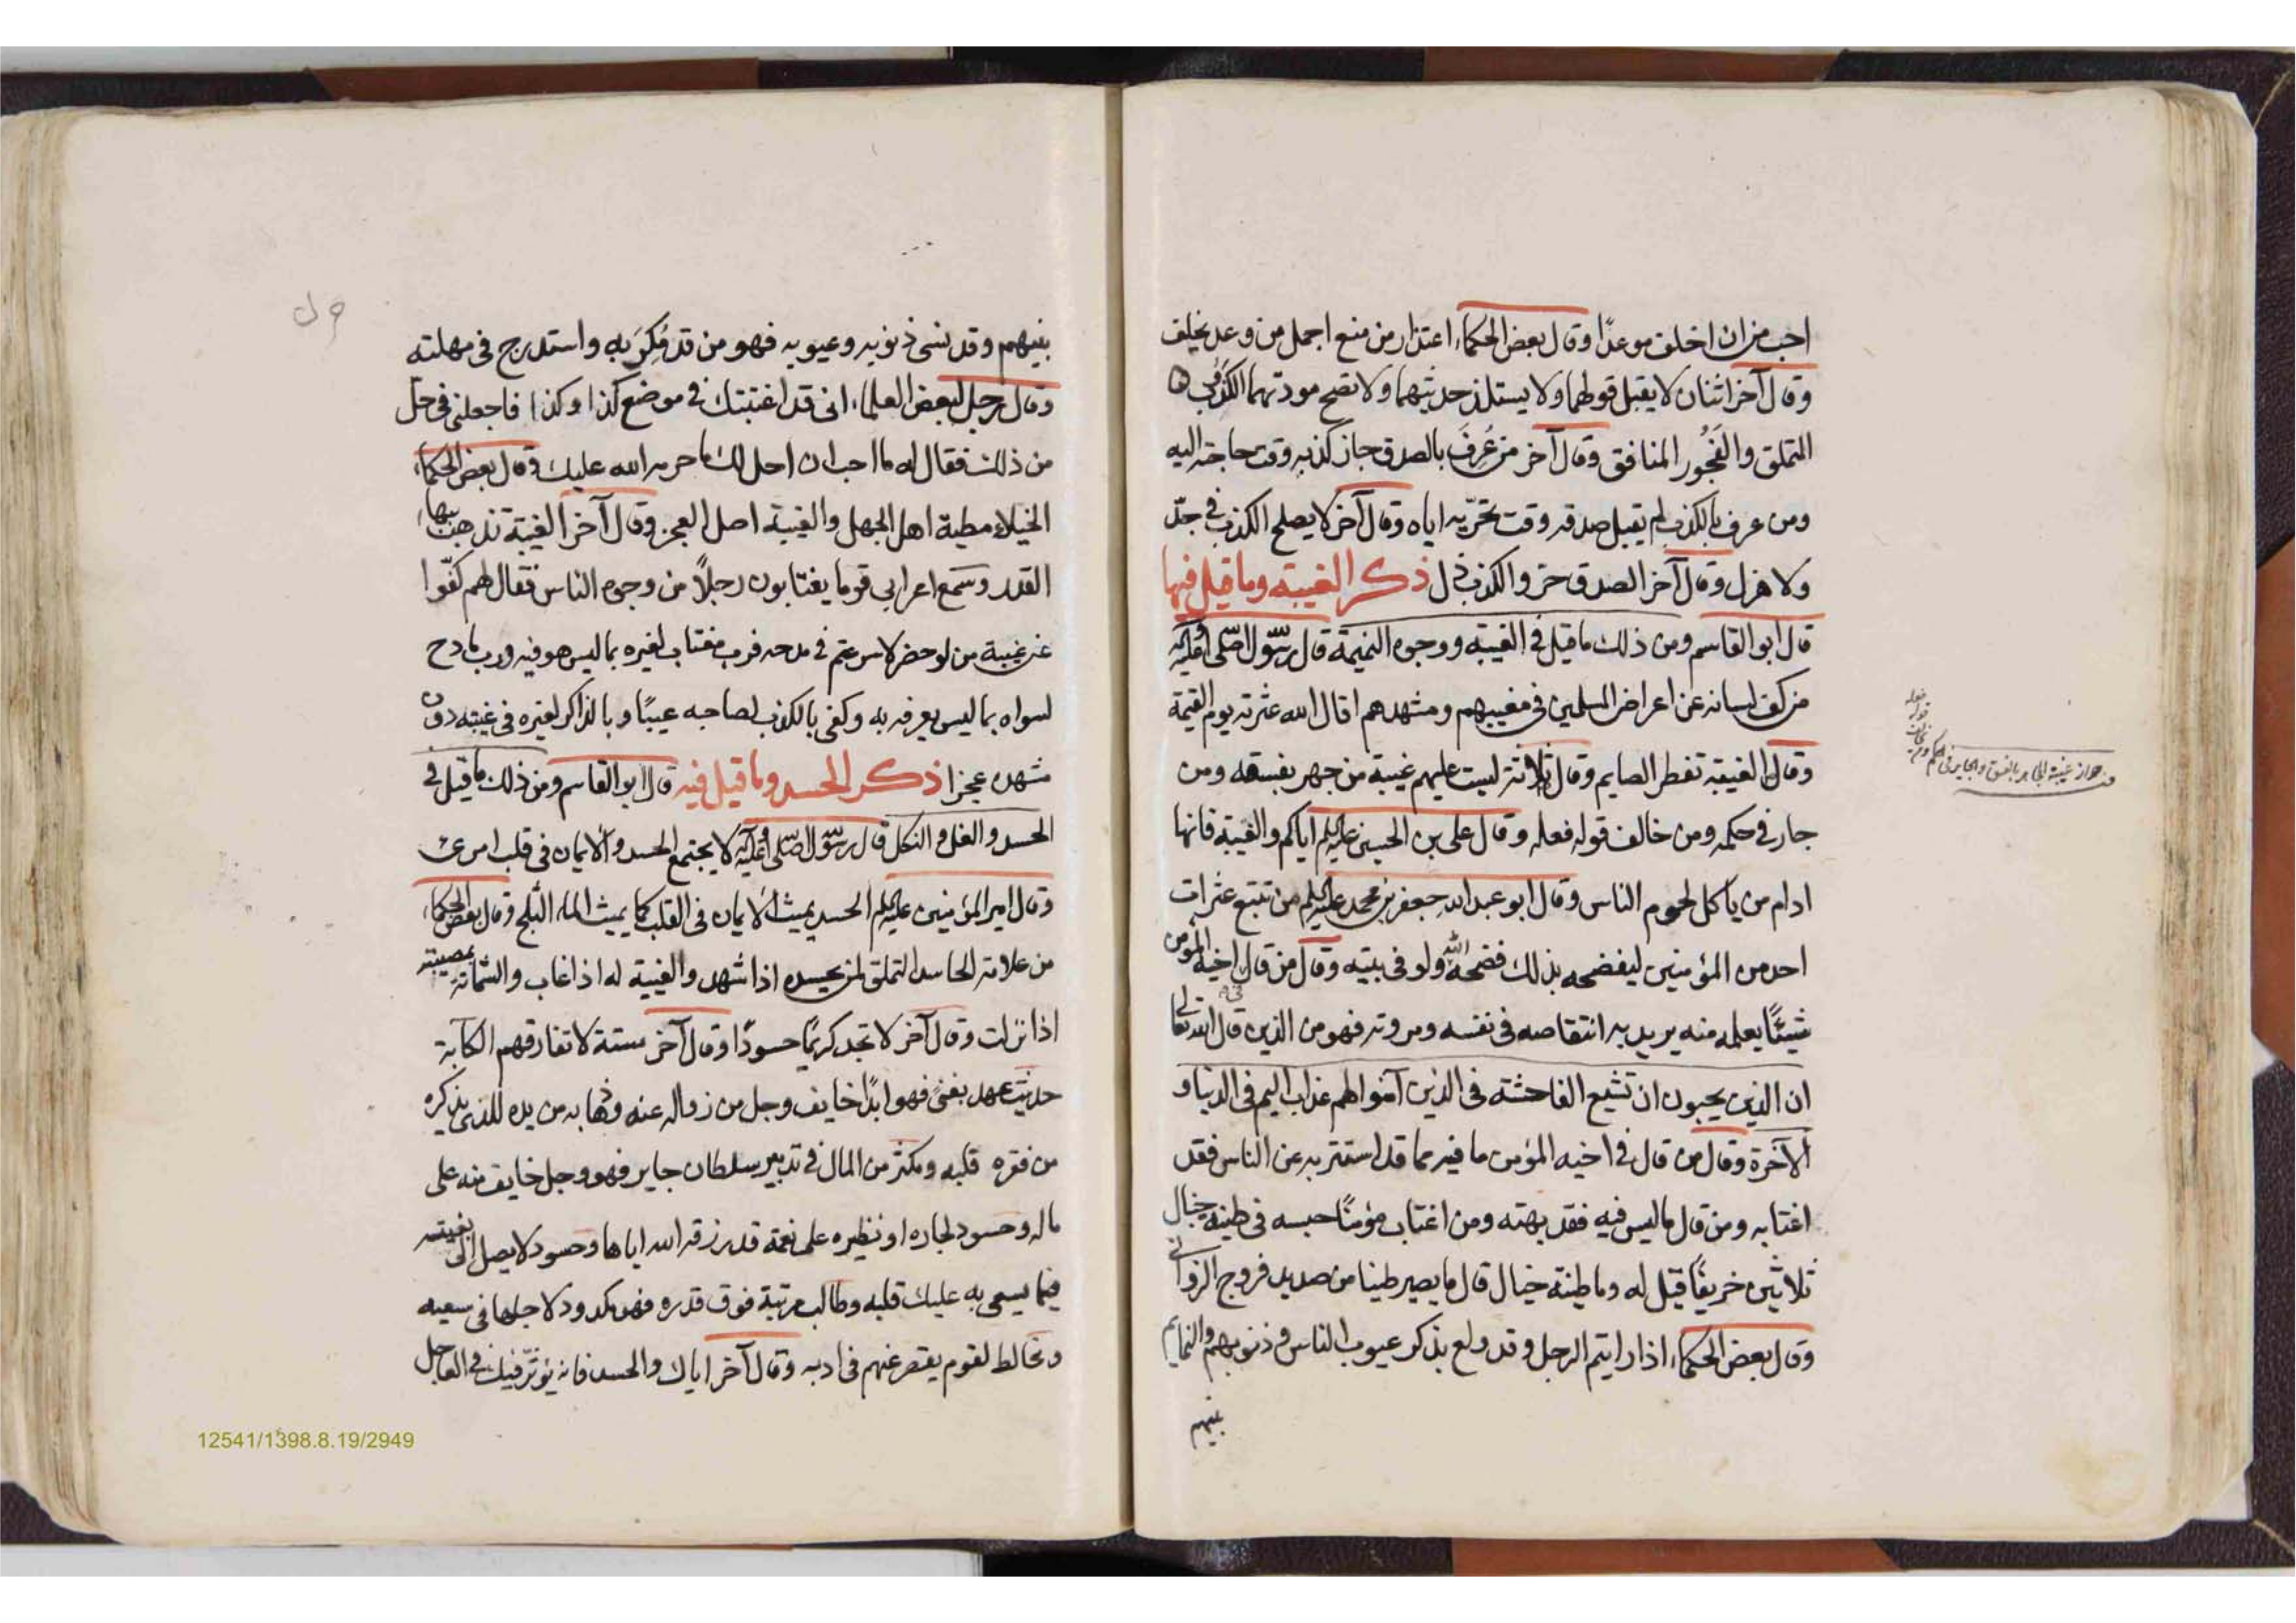 احب من ان اخلف موعدًا وقال بعض الحكماء اعتذار من منع اجمل من وعد يخلف
وقال آخر اثنان لا يقبل قولهما ولا يستلذ حديثهما ولا تصح مودتهما الكذوب
المتملق والفجور المنافق وقال آخر من عُرِفَ بالصدق جاز كذبه وقت حاجته اليه
ومن عرف بالكذب لم يقبل صدقه وقت تحرّيه اياه وقال آخر لا يصلح الكذب في جدّ
ولا هزل وقال آخر الصدق حز والكذب ذل ذكر الغيبة وما قيل فيها
قال ابو القاسم ومن ذلك ما قيل في الغيبة ووجوه النميمة قال رسول الله صلى الله عليه وآله
من كف لسانه عن اعراض المسلمين في مغيبهم ومشهدهم اقال الله عثرته يوم القيمة
وقال الغيبة تفطر الصايم وقال ثلاثة ليست عليهم غيبة من جهر بفسقه ومن
جار في حكمه ومن خالف قوله فعله وقال على بن الحسين عليه السلم اياكم والغيبة فانها
ادام من يأكل لحوم الناس وقال ابو عبد الله جعفر بن محمد عليه السلم من تتبع عثرات
احد من المؤمنين ليفضحه بذلك فضحه الله ولو في بيته وقال من قال في اخيه المؤمن
شيئًا يعلمه منه يريد به انتقاصه في نفسه ومروته فهو من الذين قال الله تعالى
ان الذين يحبون ان تشيع الفاحشة في الذين آمنوا لهم عذاب اليم في الدنيا و
الآخرة وقال من قال في اخيه المؤمن ما فيه مما قد استتر به عن الناس فقد
اغتابه ومن قال ما ليس فيه فقد بهته ومن اغتاب مؤمنًا حبسه في طينة خبال
ثلاثين خريفًا قيل له وما طينة خبال قال ما يصير طينا من صديد فروج الزوانى
وقال بعض الحكماء اذا رايتم الرجل وقد ولع بذكر عيوب الناس وذنوبهم والنمايم
بينهم
بينهم وقد نسى ذنوبه وعيوبه فهو من قد مُكِرَ به واستدرج في مهلته
وقال رجل لبعض العلماء انى قد اغتبتك في موضع كذا وكذا فاجعلنى في حل
من ذلك فقال له ما احب ان احل لك ما حرمه الله عليك وقال بعض الحكماء
الخيلاء مطية اهل الجهل والغيبة اصل العجز وقال آخر الغيبة تذهب بهاء
القدر وسمع اعرابى قوما يغتابون رجلًا من وجوه الناس فقال لهم كفّوا
عن غيبة من لو حضر لاسرعتم في مدحه فرب مغتاب لغيره بما ليس هو فيه ورب مادح
لسواه بما ليس يعرفه به وكفى بالكذب لصاحبه عيبًا وبالذاكر لغيره في غيبته دون
مشهده عجزا ذكر الحسد وما قيل فيه قال ابو القاسم ومن ذلك ما قيل في
الحسد والغل والنكل قال رسول الله صلى الله عليه وآله لا يجتمع الحسد والايمان في قلب امرئ
وقال امير المؤمنين عليه السلم الحسد يميث الايمان في القلب كما يميث الماء الثلج وقال بعض الحكماء
من علامة الحاسد التملق لمن يحسده اذا شهد والغيبة له اذا غاب والشماتة بمصيبته
اذا نزلت وقال آخر لا تجد كريمًا حسودًا وقال آخر ستة لا تفارقهم الكآبة
حديث عهد بغنى فهو ابدًا خايف وجل من زواله عنه وذهابه من يده للذى يذكره
من فقره قلبه ومكثر من المال في تدبير سلطان جاير فهو وجل خايف منه على
ماله وحسود لجاره او نظيره على نعمة قد رزقه الله اياها وحسود لا يصل الى بغيته
فيما يسعى به عليك قلبه وطالب مرتبة فوق قدره فهو مكدود لاجلها في سعيه
ومخالط لقوم يقصر عنهم في ادبه وقال آخر اياك والحسد فانه يؤثر فيك في العاجل
12541/1398.8.19/2949